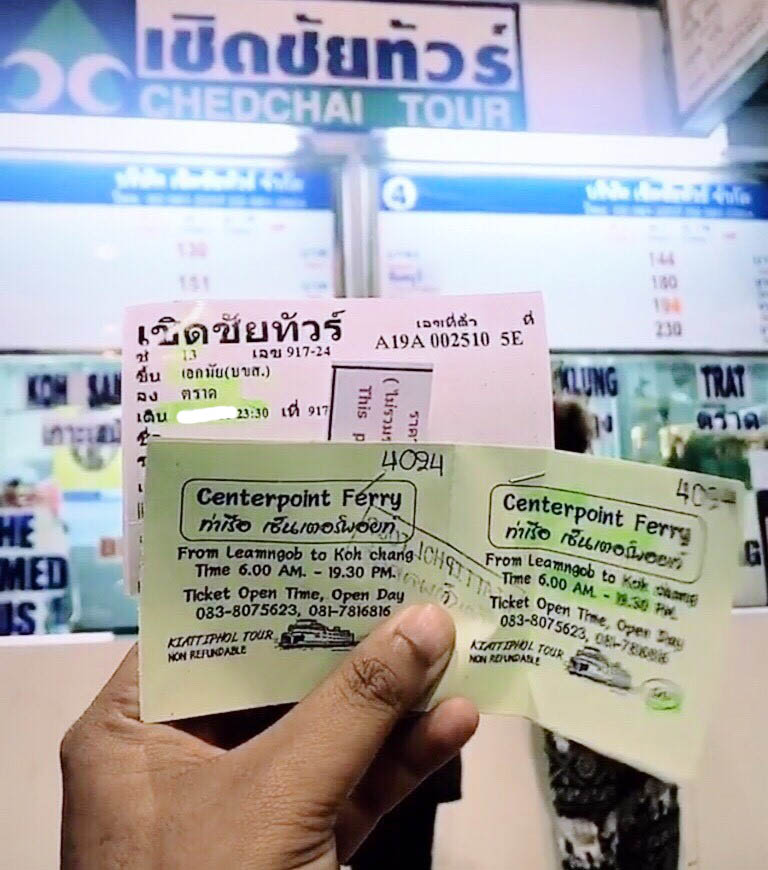 เชิดชัยทัวร์
CHEDCHAI TOUR
บริษัท เชิดชัยทัวร์ จำกัด
4
บริษัท เชิดชัยทัวร์ จำกัด
130
151
144
180
194
230
KLUNG
TRAT
ตราด
เชิดชัยทัวร์
เลขที่ตั๋ว
ที่
A19A 002510 5E
13 เลข 917-24
ขึ้น เอกมัย(บขส.)
ลง ตราด
เดิน 23:30 เที่ 917
This
4024
Centerpoint Ferry
ท่าเรือ เซ็นเตอร์พอยท์
From Leamngob to Koh chang
Time 6.00 AM. - 19.30 PM.
Ticket Open Time, Open Day
083-8075623, 081-7816816
KIATTIPHOL TOUR
NON REFUNDABLE
Centerpoint Ferry
ท่าเรือ เซ็นเตอร์พอยท์
From Leamngob to Koh chang
Time 6.00 AM. - 19.30 PM.
Ticket Open Time, Open Day
083-8075623, 081-7816816
KIATTIPHOL TOUR
NON REFUNDABLE